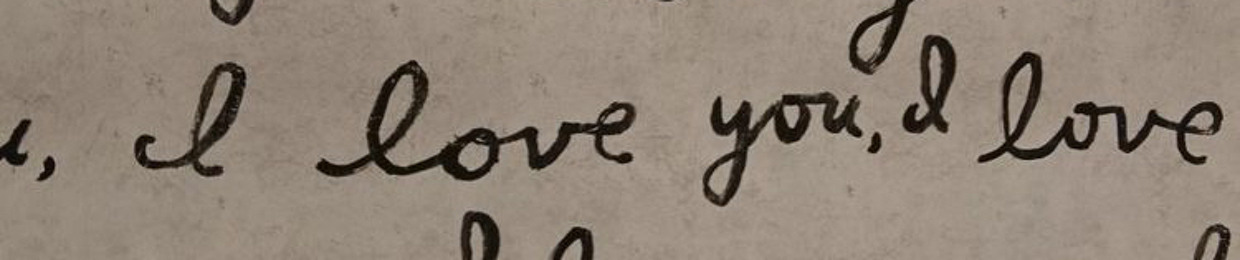 u, I love you, I love